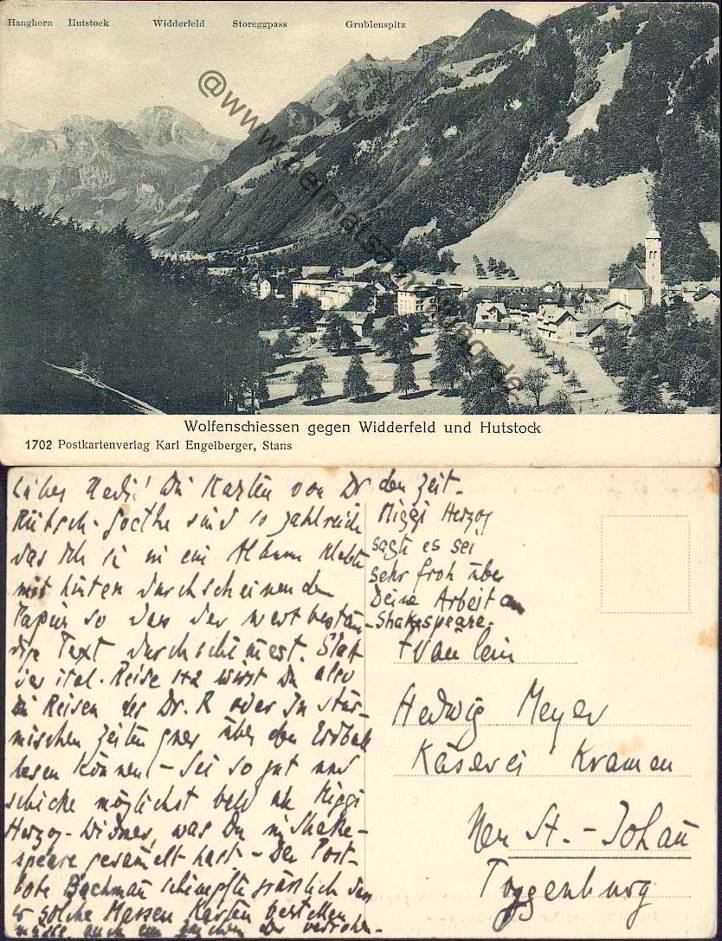 Hanghorn Hutstock Widderfeld Storeggpass Grublenspitz
@www.heimatsammlung.de
Wolfenschiessen gegen Widderfeld und Hutstock
1702 Postkartenverlag Karl Engelberger, Stans
Lieber Hedi! Die Karten von Dr
Rütsch-Goethe sind so zahlreich
das ich sie in ein Album klebte
mit hinten durchscheinendem
Papier so dass der wertbestän-
dige Text durchschimert. Statt
der ital. Reise 1+2 wirst Du also
die Reisen des Dr. R oder In stür-
mischen Zeiten quer über den Erdball
lesen können! - Sei so gut und
schicke möglichst bald an Miggi
Herzog-Widmer, was Du in Shake-
speare gesamelt hast - Der Post-
bote Bachman schimpfte grässlich dass
er solche Massen Karten vertragen
müsse, auch ein Zeichen der verrohe-
den Zeit.
Miggi Herzog
sagte es sei
sehr froh über
Deine Arbeit am
Shakespeare.
Fräulein
Hedwig Meyer
Käserei Kramen
Neu St.-Johan
Toggenburg